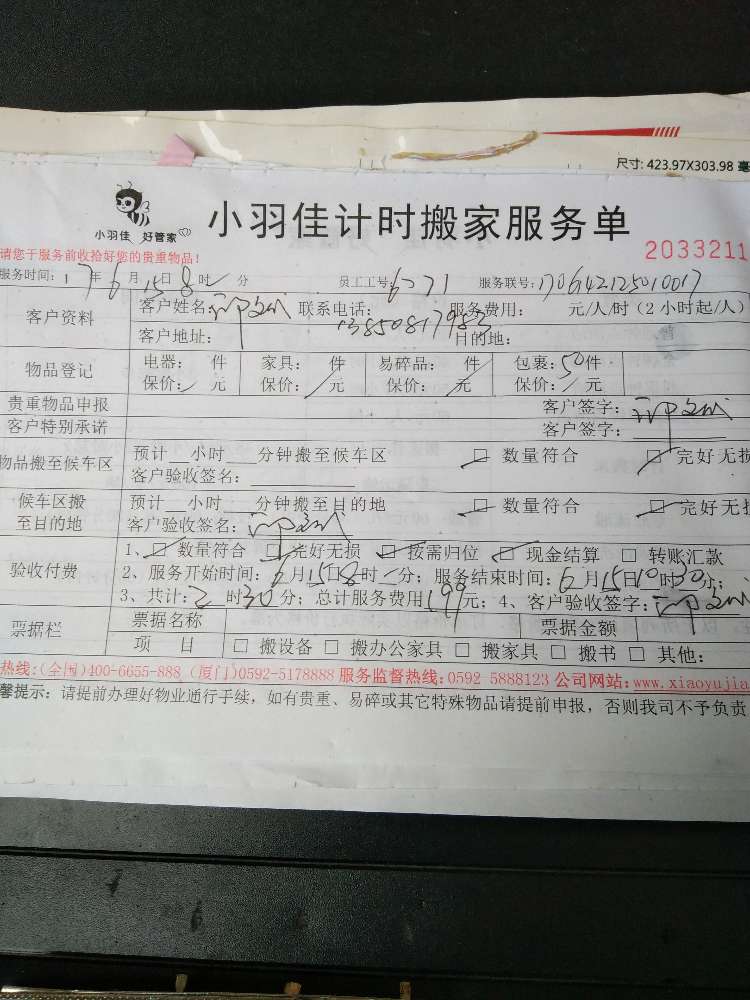 尺寸: 423.97X303.98 毫
小羽佳 好管家
小羽佳计时搬家服务单
2033211
请您于服务前收拾好您的贵重物品!
服务时间: 17年6月15日8时/分 员工工号: 6771 服务联号: 170642125010017
客户资料
客户姓名: 联系电话: 13850817983 服务费用: 元/人/时 (2 小时起/人)
客户地址: 目的地:
物品登记
电器: 件 家具: 件 易碎品: 件 包裹: 50件
保价: / 元 保价: / 元 保价: / 元 保价: / 元
贵重物品申报 客户签字:
客户特别承诺 客户签字:
物品搬至候车区
预计 小时 分钟搬至候车区 数量符合 完好无损
客户验收签名:
候车区搬至目的地
预计 小时 分钟搬至目的地 数量符合 完好无损
客户验收签名:
验收付费
1、 数量符合 完好无损 按需归位 现金结算 □ 转账汇款
2、服务开始时间: 6月15日8时/分; 服务结束时间: 6月15日10时30分;
3、共计: 2时30分; 总计服务费用199元; 4、客户验收签字:
票据栏
票据名称 票据金额
项 目 □ 搬设备 □ 搬办公家具 □ 搬家具 □ 搬书 □ 其他:
热线:(全国)400-6655-888 (厦门)0592-5178888 服务监督热线:0592-5888123 公司网站: www.xiaoyujia
馨提示: 请提前办理好物业通行手续, 如有贵重、易碎或其它特殊物品请提前申报, 否则我司不予负责